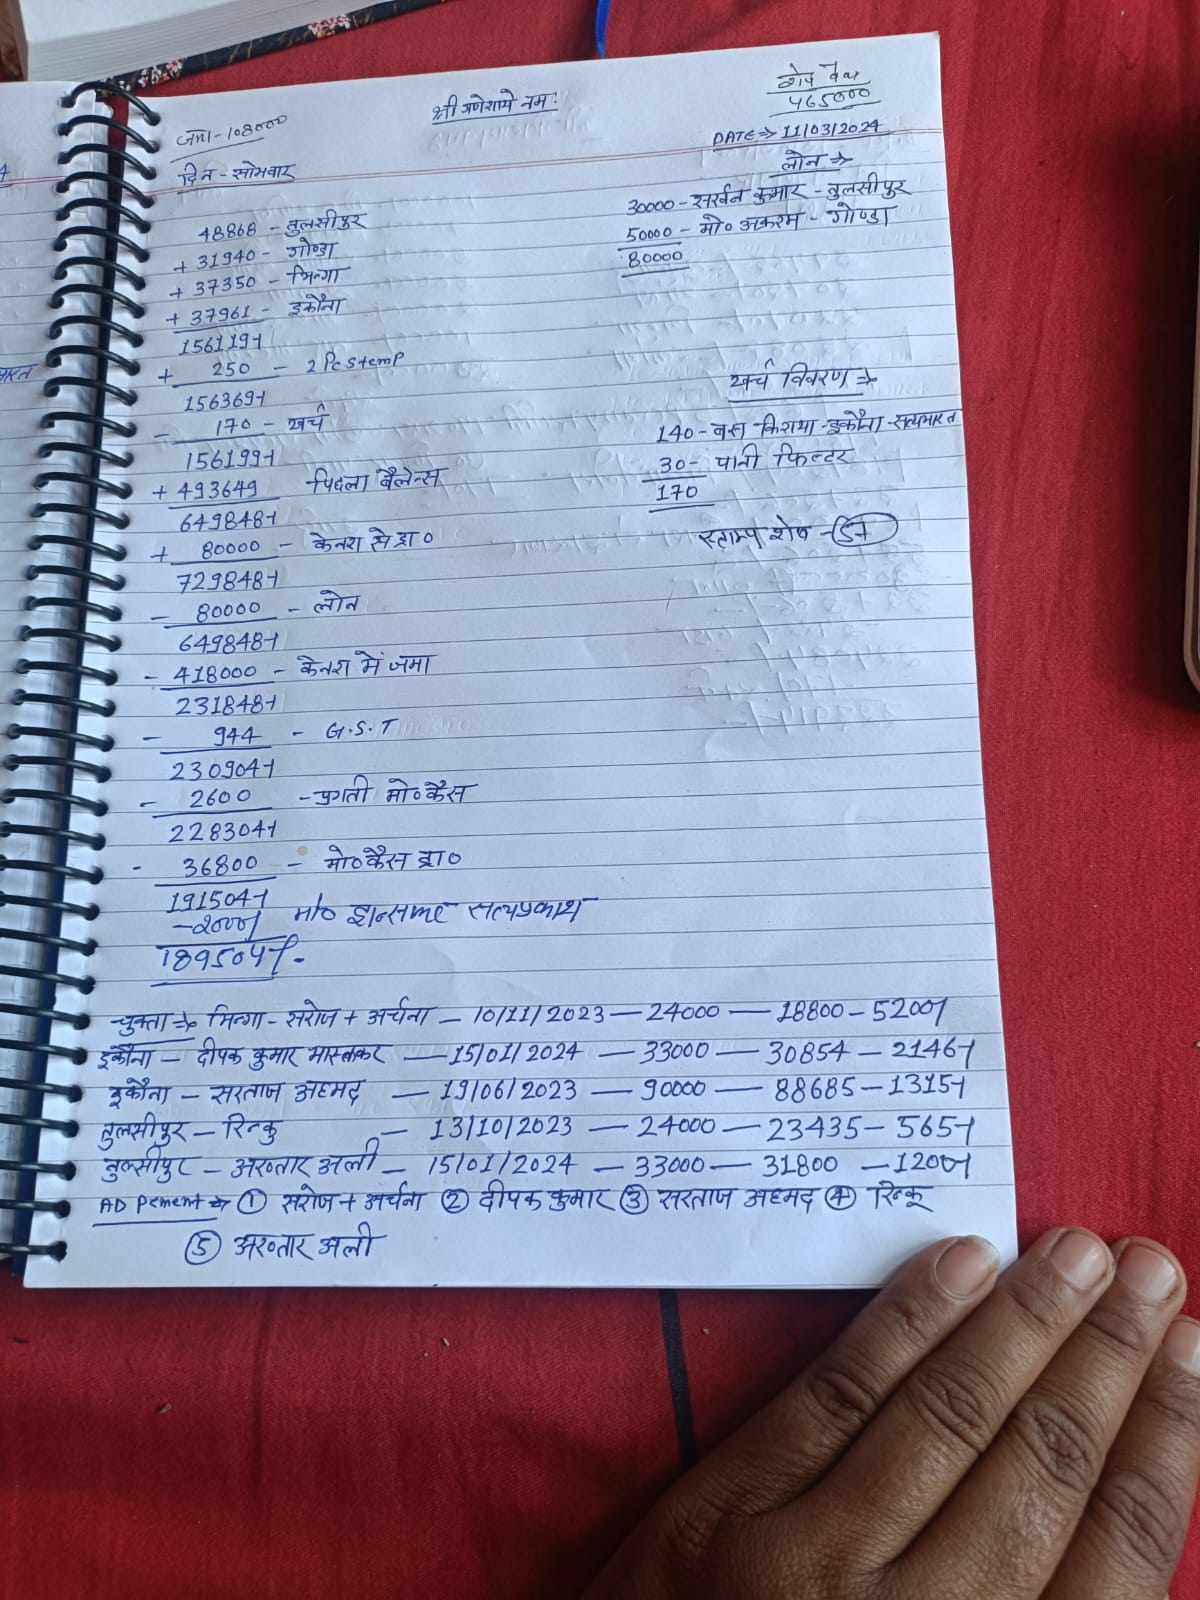 श्री गणेशाये नमः
शेष बैंक
465000
जमा-108000
DATE⇒11/03/2024
दिन-सोमवार
लोन⇒
30000-सरवन कुमार-तुलसीपुर
50000-मो० अकरम-गोण्डा
80000
48868-तुलसीपुर
+31940-गोण्डा
+37350-भिन्गा
+37961-इकौना
156119/-
+250-2 Pc Stemp
156369/-
-170-खर्च
156199/-
+493649 पिछला बैलेन्स
649848/-
+80000-केनरा से ड्रा०
729848/-
-80000-लोन
649848/-
-418000-केनरा में जमा
231848/-
-944-G.S.T
230904/-
-2600-प्रगती मो० कैस
228304/-
-36800-मो० कैस ड्रा०
191504/-
-2000/- सत्यप्रकाश
189504/-
खर्च विवरण⇒
140-बस किराया-इकौना-सत्यभारत
30-पानी फिल्टर
170
स्ताम्प शेष-57
चुक्ता⇒भिन्गा-सरोज+अर्चना-10/11/2023-24000-18800-5200/-
इकौना-दीपक कुमार भास्कर-15/01/2024-33000-30854-2146/-
इकौना-सरताज अहमद-19/06/2023-90000-88685-1315/-
तुलसीपुर-रिन्कु-13/10/2023-24000-23435-565/-
तुलसीपुर-अख्तार अली-15/01/2024-33000-31800-1200/-
AD Pement⇒① सरोज+अर्चना ② दीपक कुमार ③ सरताज अहमद ④ रिन्कू
⑤ अख्तार अली
भारत
4